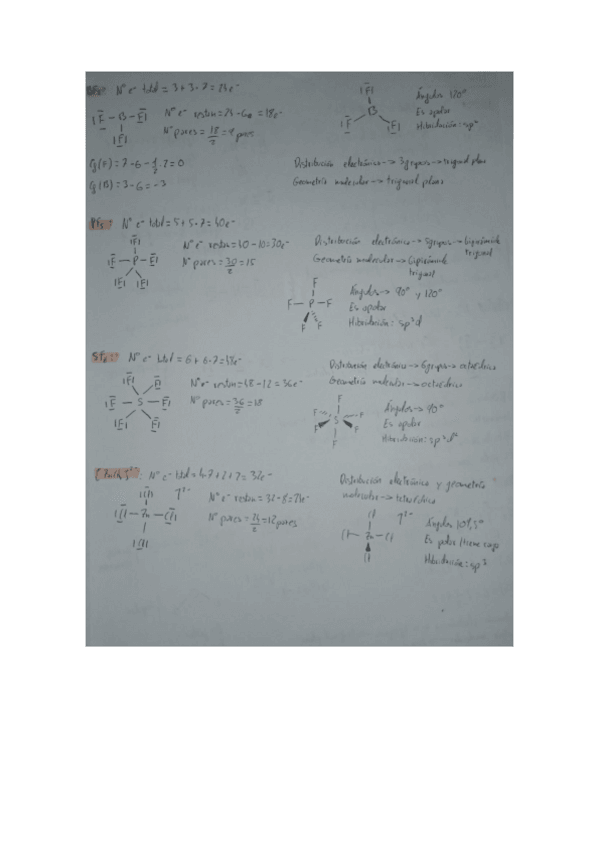 BF₃: Nº e⁻ total = 3 + 3·7 = 24e⁻
Nº e⁻ restan = 24 - 6 = 18e⁻
Nº pares = 18/2 = 9 pares
F - B - F
F
F
B
F F
Ángulos 120°
Es apolar
Hibridación: sp²
Cg(F) = 7 - 6 - 1/2 · 2 = 0
Cg(B) = 3 - 6 = -3
Distribución electrónica -> 3 grupos -> trigonal plana
Geometría molecular -> trigonal plana
PF₅: Nº e⁻ total = 5 + 5·7 = 40e⁻
Nº e⁻ restan = 40 - 10 = 30e⁻
Nº pares = 30/2 = 15
F
F - P - F
F F
Distribución electrónica -> 5 grupos -> bipirámide trigonal
Geometría molecular -> bipirámide trigonal
F
F - P - F
F F
Ángulos -> 90° y 120°
Es apolar
Hibridación: sp³d
SF₆: Nº e⁻ total = 6 + 6·7 = 48e⁻
Nº e⁻ restan = 48 - 12 = 36e⁻
Nº pares = 36/2 = 18
F F
F - S - F
F F
Distribución electrónica -> 6 grupos -> octaédrica
Geometría molecular -> octaédrica
F
F F
S
F F
F
Ángulos -> 90°
Es apolar
Hibridación: sp³d²
[ZnCl₄]²⁻: Nº e⁻ total = 4·7 + 2 + 2 = 32e⁻
Nº e⁻ restan = 32 - 8 = 24e⁻
Nº pares = 24/2 = 12 pares
Cl ]²⁻
Cl - Zn - Cl
Cl
Distribución electrónica y geometría
molecular -> tetraédrica
Cl ]²⁻
Cl - Zn - Cl
Cl
Ángulos 109,5°
Es polar (tiene carga
Hibridación: sp³